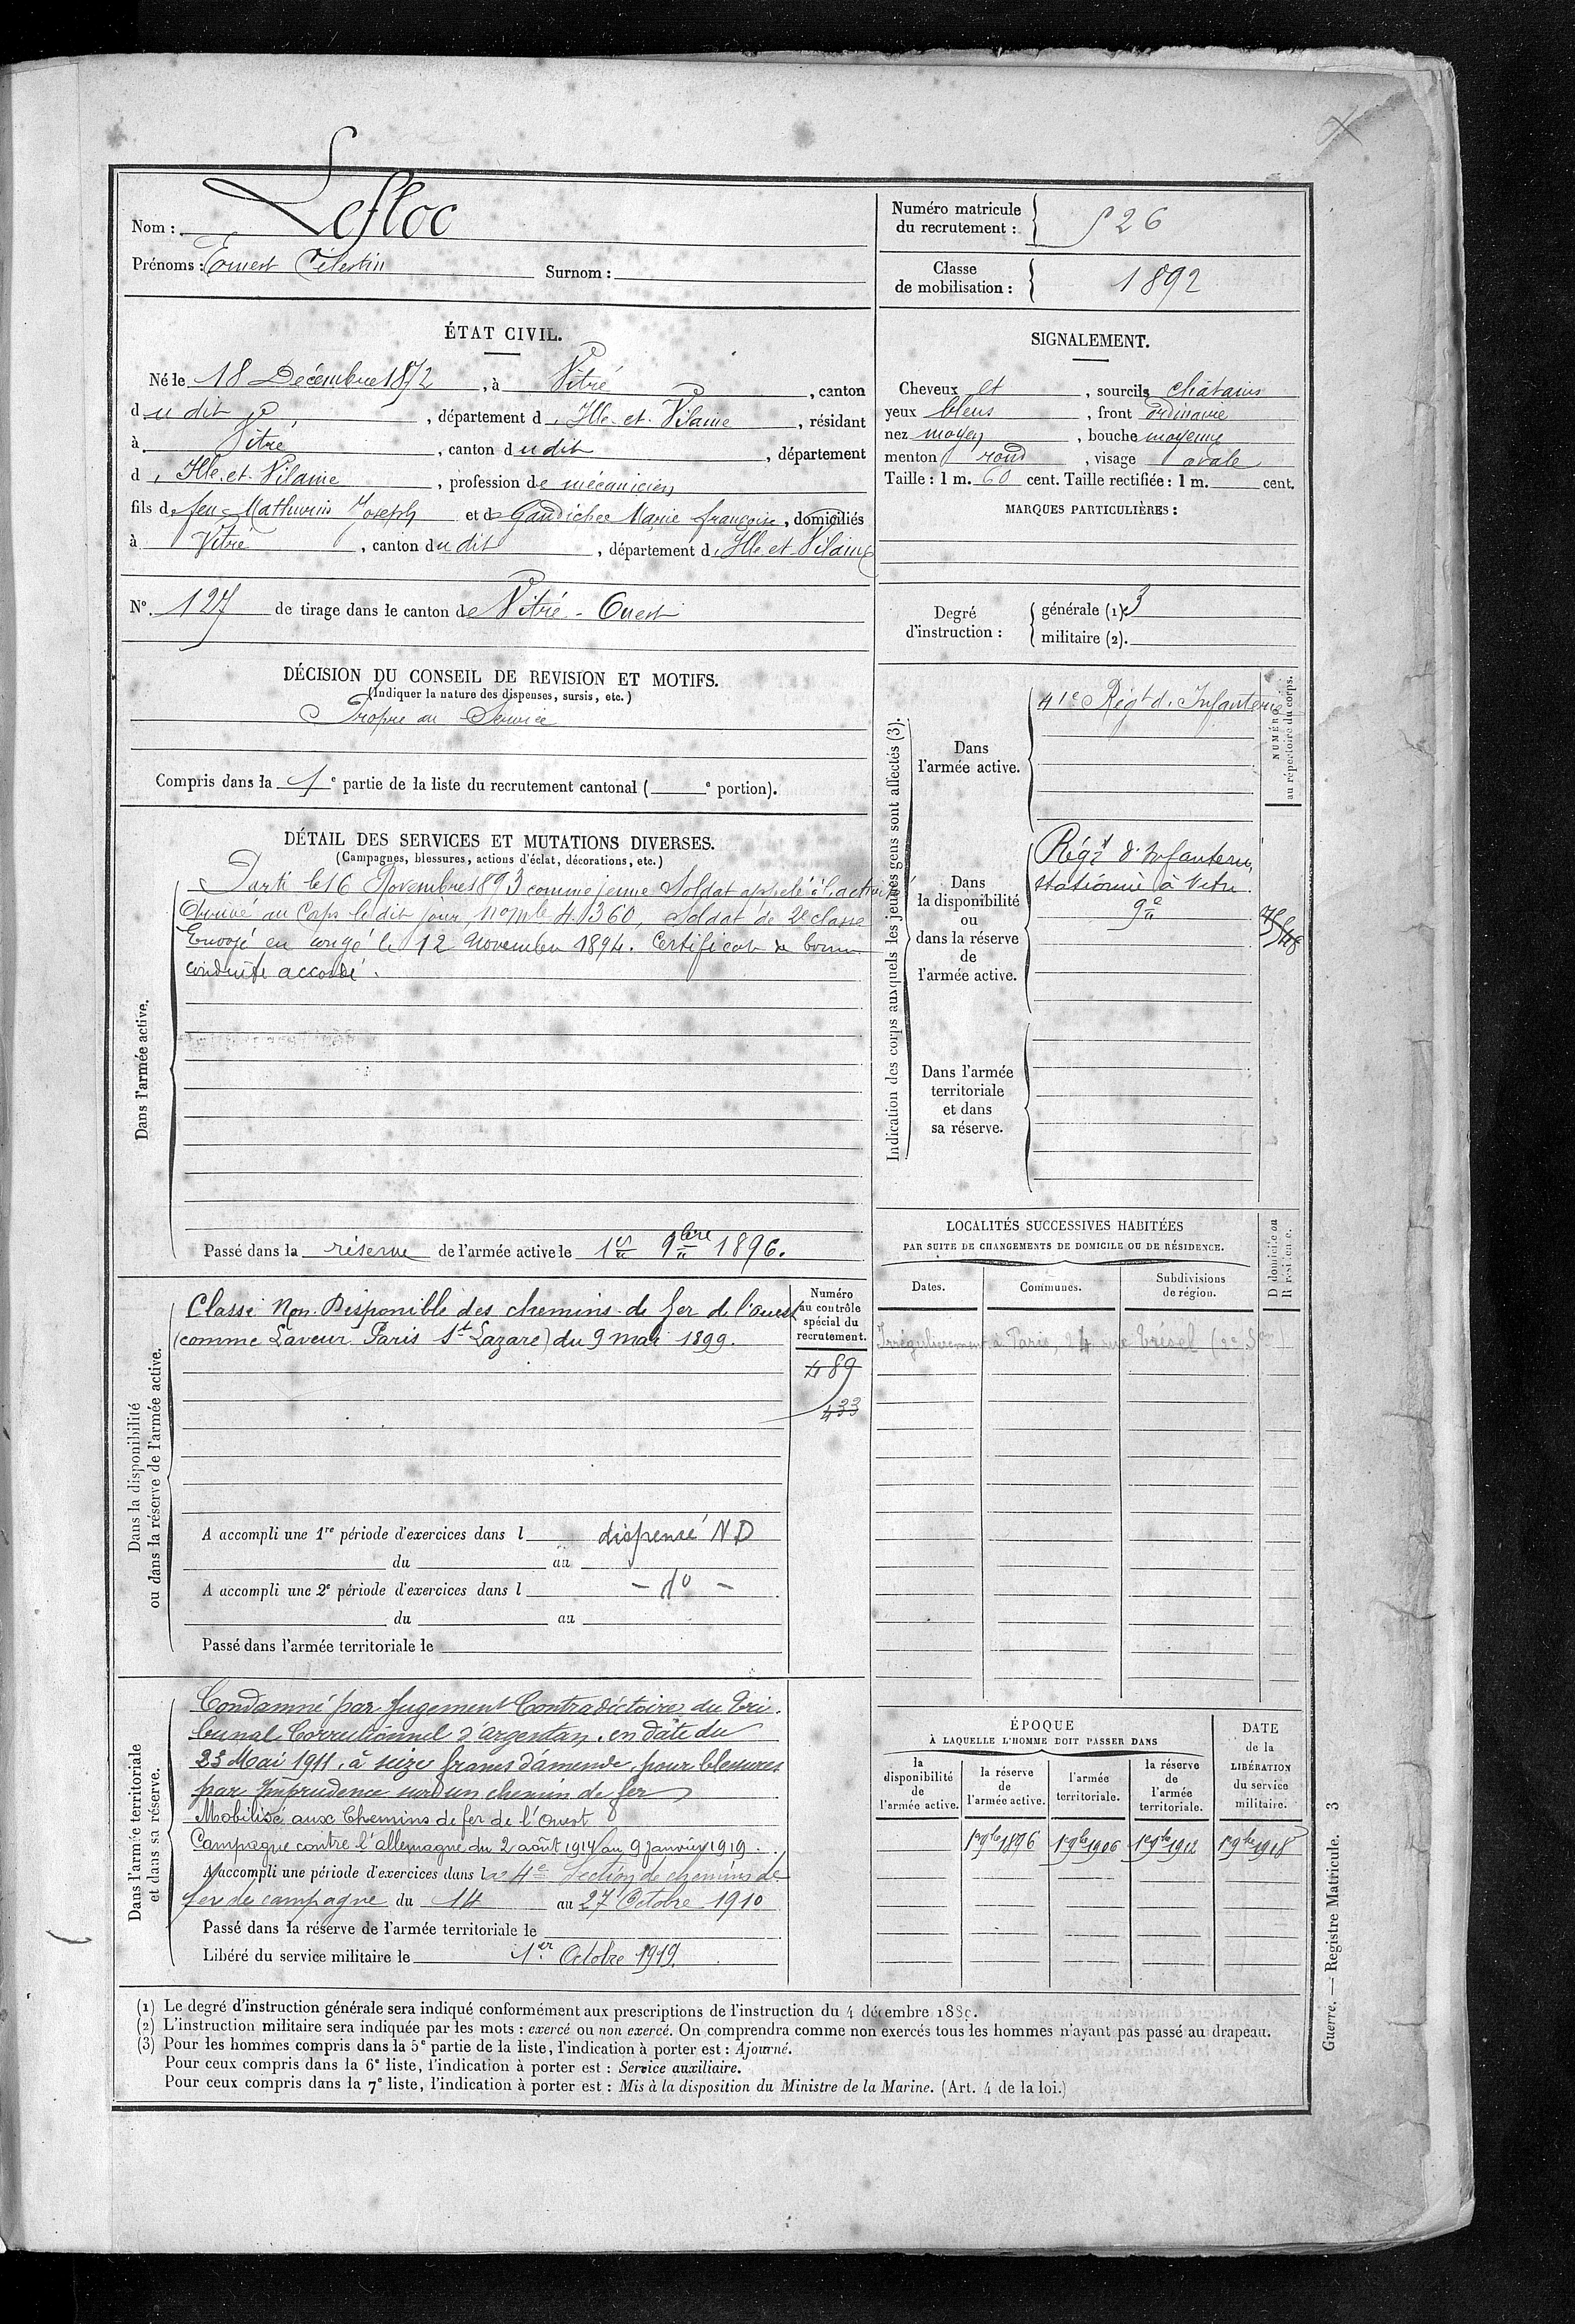 Nom : Lefloc
Prénoms : Ernest Célestin Surnom :
ÉTAT CIVIL.
Né le 18 Décembre 1872, à Vitré, canton
du dit, département d'Ille-et-Vilaine, résidant
à Vitré, canton du dit, département
d'Ille-et-Vilaine, profession de mécanicien
fils de feu Mathurin Joseph et de Gaudichee Marie françoise, domiciliés
à Vitré, canton du dit, département d'Ille-et-Vilaine
N°. 127 de tirage dans le canton de Vitré-Ouest
DÉCISION DU CONSEIL DE REVISION ET MOTIFS.
(Indiquer la nature des dispenses, sursis, etc.)
Propre au Service
Compris dans la 1e partie de la liste du recrutement cantonal ( e portion).
DÉTAIL DES SERVICES ET MUTATIONS DIVERSES.
(Campagnes, blessures, actions d'éclat, décorations, etc.)
Dans l'armée active.
Parti le 16 Novembre 1893 comme jeune Soldat appelé à l'activité
Arrivé au Corps le dit jour, n° mle 4360, Soldat de 2e classe
Envoyé en congé le 12 Novembre 1894. Certificat de bonne
conduite accordé.
Passé dans la réserve de l'armée active le 1er 9bre 1896.
Dans la disponibilité
ou dans la réserve de l'armée active.
Classé Non-Disponible des chemins de fer de l'ouest
(comme Laveur Paris St Lazare) du 9 mai 1899.
Numéro
au contrôle
spécial du
recrutement.
489
433
A accompli une 1re période d'exercices dans l dispensé ND
du au
A accompli une 2e période d'exercices dans l - do -
du au
Passé dans l'armée territoriale le
Dans l'armée territoriale
et dans sa réserve.
Condamné par Jugement Contradictoire du Tri-
bunal Correctionnel d'Argentan, en date du
23 Mai 1911, à seize francs d'amende, pour blessures
par Imprudence sur un chemin de fer
Mobilisé aux Chemins de fer de l'Ouest
Campagne contre l'allemagne du 2 août 1914 au 9 Janvier 1919.
A accompli une période d'exercices dans la 4e Section de chemins de
fer de campagne du 14 au 27 Octobre 1910
Passé dans la réserve de l'armée territoriale le
Libéré du service militaire le 1er Octobre 1919.
Numéro matricule
du recrutement : 526
Classe
de mobilisation : 1892
SIGNALEMENT.
Cheveux et, sourcils châtains
yeux bleus, front ordinaire
nez moyen, bouche moyenne
menton rond, visage ovale
Taille : 1 m. 60 cent. Taille rectifiée : 1 m. cent.
MARQUES PARTICULIÈRES :
Degré
d'instruction :
générale (1). 3
militaire (2).
Indication des corps auxquels les jeunes gens sont affectés (3).
NUMÉRO
au répertoire du corps.
Dans
l'armée active.
41e Régt d'Infanterie
Dans
la disponibilité
ou
dans la réserve
de
l'armée active.
Régt d'Infanterie
stationné à Vitré
Dans l'armée
territoriale
et dans
sa réserve.
LOCALITÉS SUCCESSIVES HABITÉES
PAR SUITE DE CHANGEMENTS DE DOMICILE OU DE RÉSIDENCE.
Dates. Communes. Subdivisions
de région.
D domicile ou
R résidence.
Irrégulièrement à Paris, 24 rue Trésel
ÉPOQUE
À LAQUELLE L'HOMME DOIT PASSER DANS
DATE
de la
LIBÉRATION
du service
militaire.
la
disponibilité
de
l'armée active.
la réserve
de
l'armée active.
l'armée
territoriale.
la réserve
de
l'armée
territoriale.
1er 9bre 1896 1er 9bre 1906 1er 9bre 1912 1er 9bre 1918
(1) Le degré d'instruction générale sera indiqué conformément aux prescriptions de l'instruction du 4 décembre 1889.
(2) L'instruction militaire sera indiquée par les mots : exercé ou non exercé. On comprendra comme non exercés tous les hommes n'ayant pas passé au drapeau.
(3) Pour les hommes compris dans la 5e partie de la liste, l'indication à porter est : Ajourné.
Pour ceux compris dans la 6e liste, l'indication à porter est : Service auxiliaire.
Pour ceux compris dans la 7e liste, l'indication à porter est : Mis à la disposition du Ministre de la Marine. (Art. 4 de la loi.)
Guerre. — Registre Matricule. 3